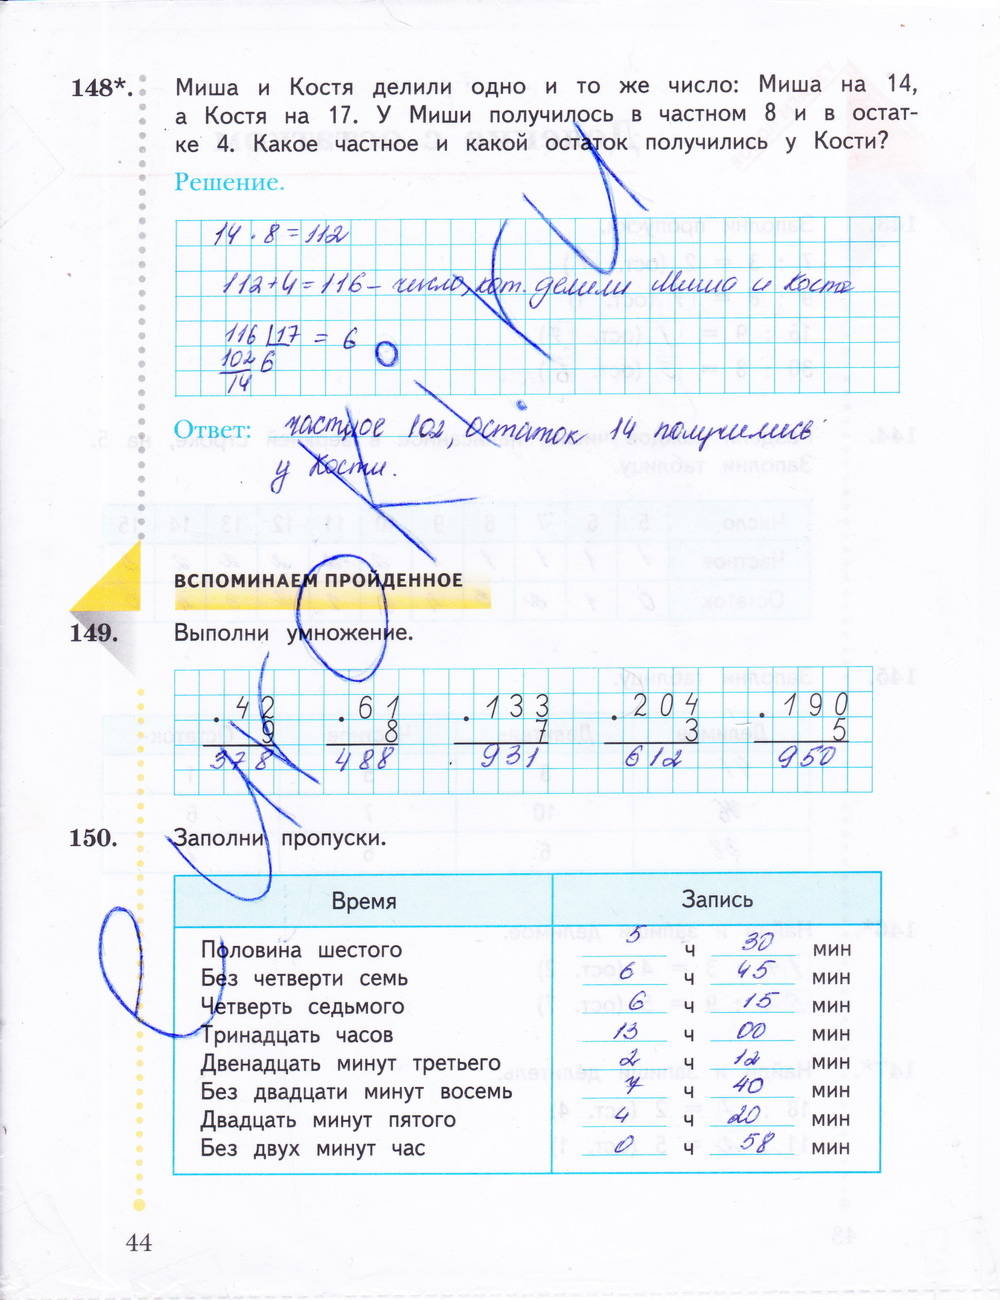 148*. Миша и Костя делили одно и то же число: Миша на 14,
а Костя на 17. У Миши получилось в частном 8 и в остат-
ке 4. Какое частное и какой остаток получились у Кости?
Решение.
14 · 8 = 112
112 + 4 = 116 – число, кот. делили Миша и Костя
116 | 17 = 6
102 6
14
Ответ: частное 102, остаток 14 получились
у Кости.
ВСПОМИНАЕМ ПРОЙДЕННОЕ
149. Выполни умножение.
. 42 . 61 . 133 . 204 . 190
9 8 7 3 5
378 488 931 612 950
150. Заполни пропуски.
Время Запись
Половина шестого 5 ч 30 мин
Без четверти семь 6 ч 45 мин
Четверть седьмого 6 ч 15 мин
Тринадцать часов 13 ч 00 мин
Двенадцать минут третьего 2 ч 12 мин
Без двадцати минут восемь 7 ч 40 мин
Двадцать минут пятого 4 ч 20 мин
Без двух минут час 0 ч 58 мин
44